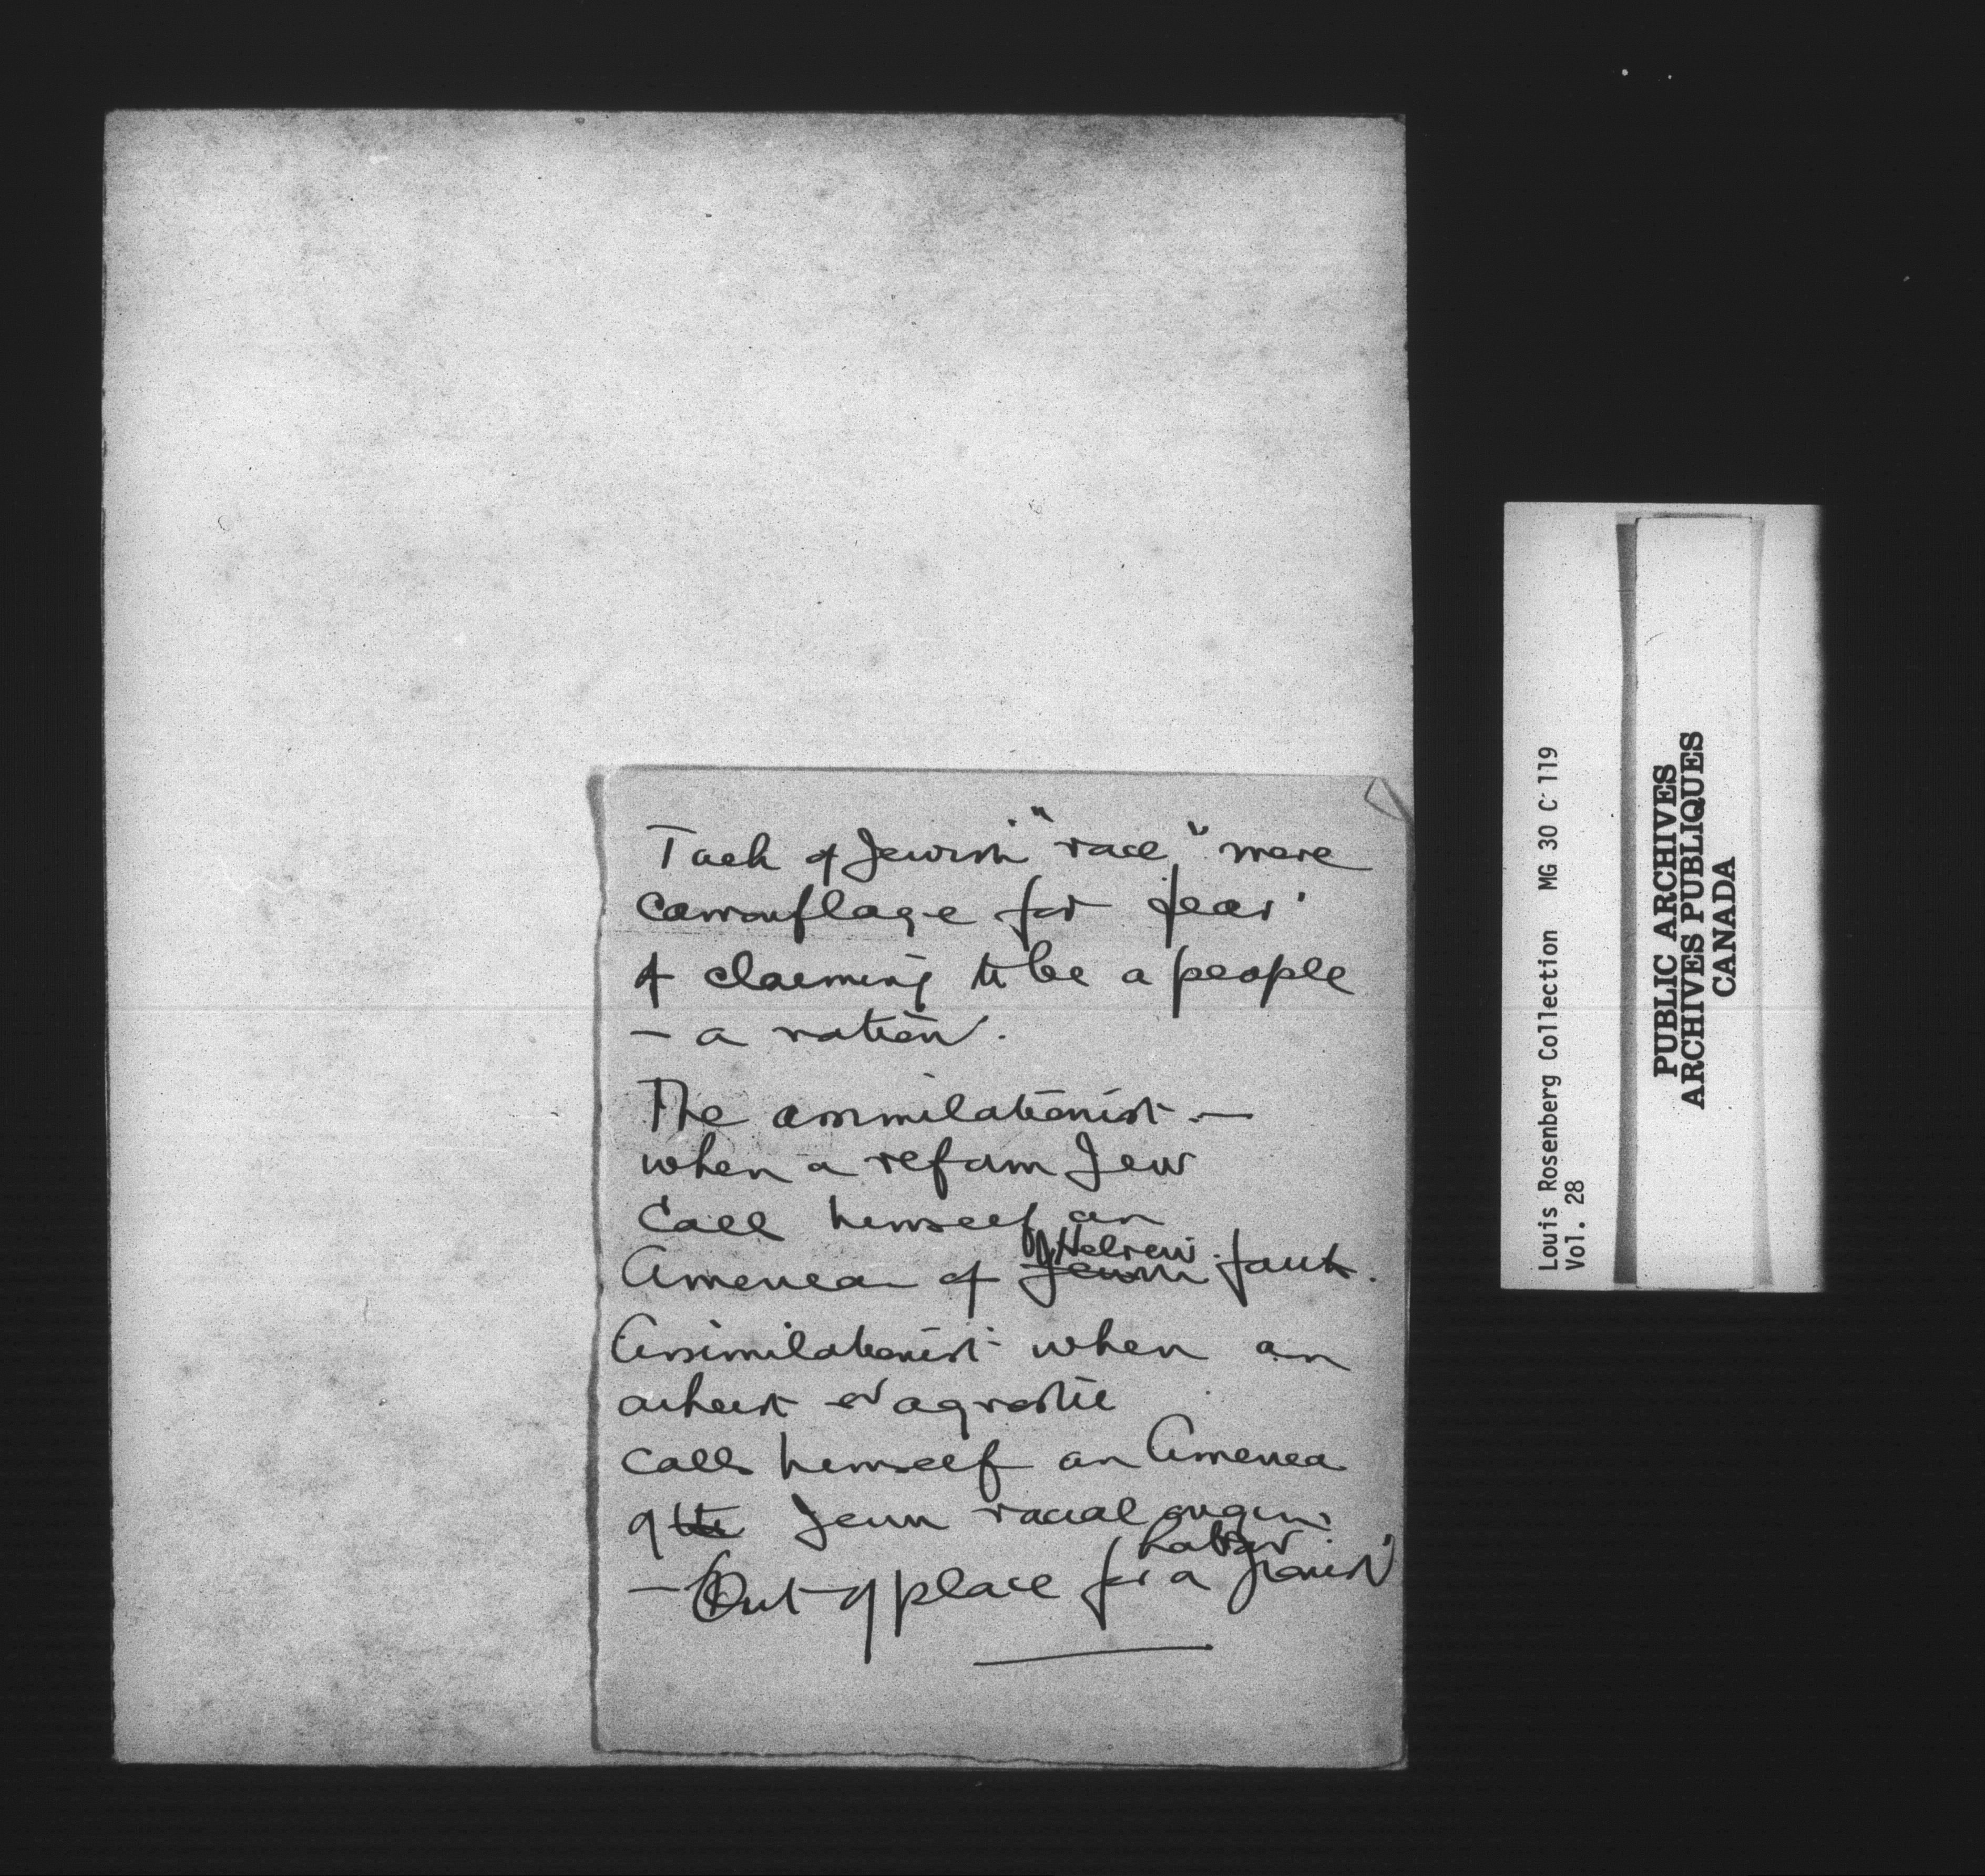 Talk of Jewish "race" mere
camouflage for fear
of claiming to be a people
— a nation.
The assimilationist —
when a reform Jew
calls himself an
American of Hebrew faith.
Assimilationist when an
atheist or agnostic
calls himself an American
of the Jewish racial origin
— Out of place for a
Louis Rosenberg Collection MG 30 C 119
Vol. 28
PUBLIC ARCHIVES
ARCHIVES PUBLIQUES
CANADA